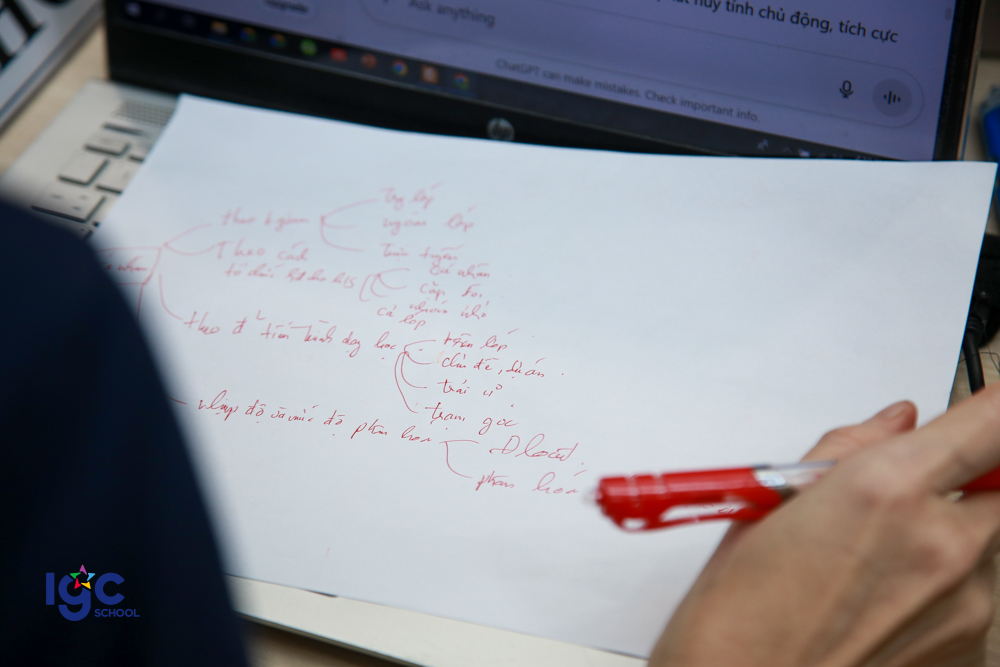 Upgrade
Ask anything
huy tính chủ động, tích cực
ChatGPT can make mistakes. Check important info.
hp
theo
lớp
ngoài lớp
Theo cách
Trực tuyến
tổ chức hđ cho hs
Cá nhân
cặp đôi,
nhóm nhỏ
cả lớp
theo
tiến trình dạy học
trên lớp
chủ đề, dự án.
trải
trạm góc
nhịp độ và mức độ phân hóa
phân hóa
IGC
SCHOOL